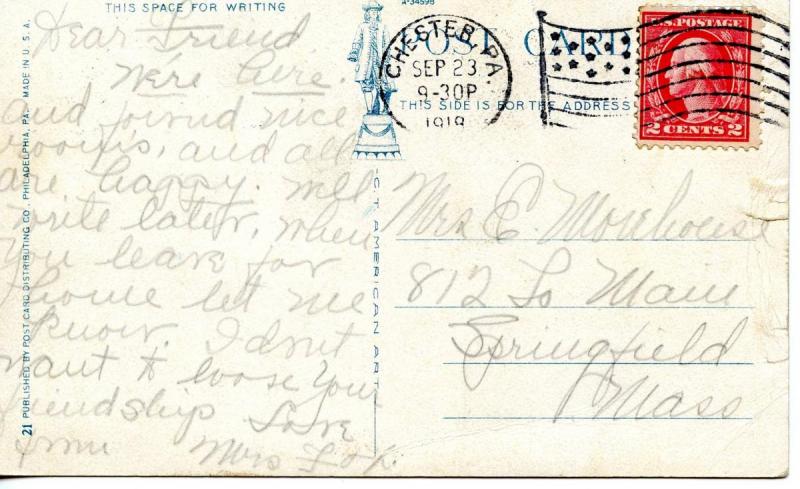 THIS SPACE FOR WRITING
A-34598
POST CARD
THIS SIDE IS FOR THE ADDRESS
CHESTER, PA.
SEP 23
9-30P
1918
U.S. POSTAGE
2 CENTS 2
Dear Friend
We're here.
and found nice
rooms, and all
are happy. will
write later, when
you leave for
home let me
know. I don't
want to loose your
friendship Love
from Mrs Fox.
Mrs C. Morehouse
812 So Main
Springfield
Mass
C.T. AMERICAN ART
21 PUBLISHED BY POST CARD DISTRIBUTING CO., PHILADELPHIA, PA. MADE IN U.S.A.